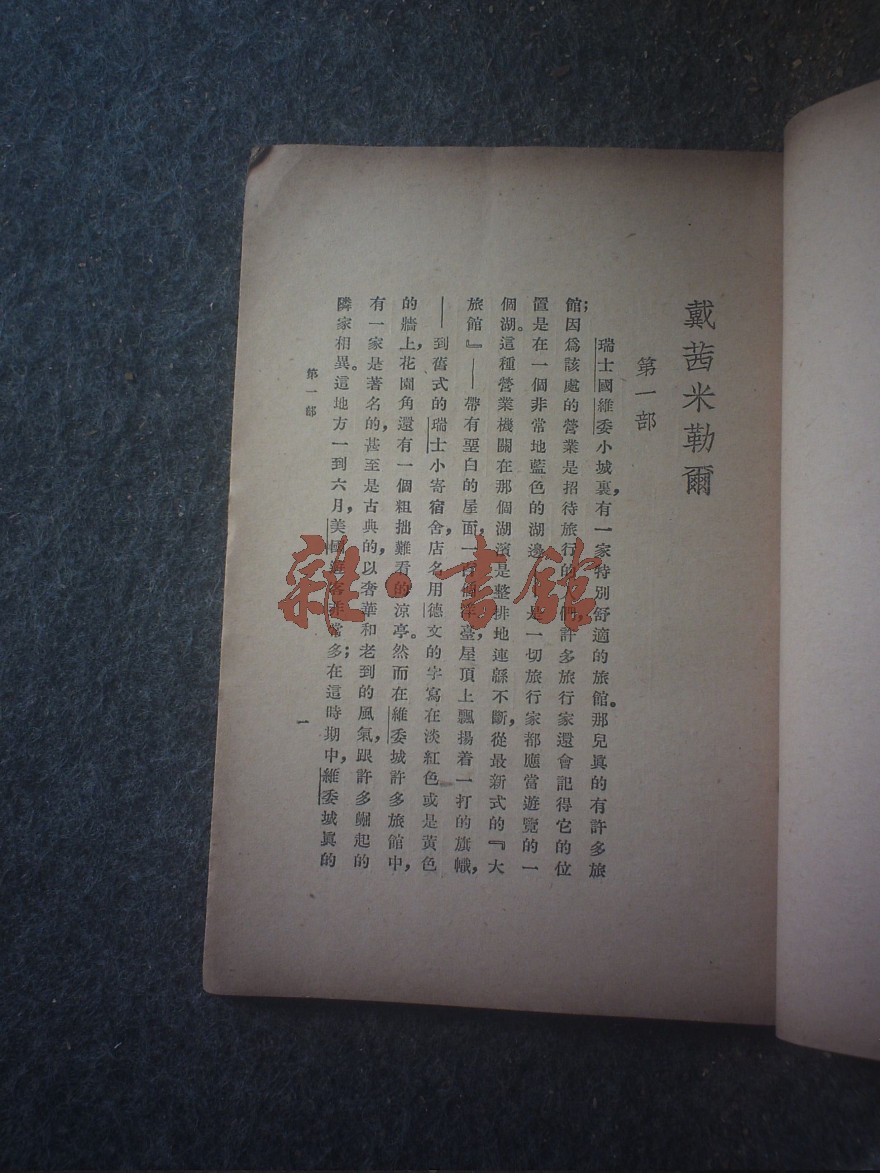 戴茜米勒爾
第一部
瑞士國維委小城裏，有一家特別舒適的旅館。那兒眞的有許多旅
館；因爲該處的營業是招待旅行的人們，許多旅行家還會記得它的位
置是在一個非常地藍色的湖邊，是一切旅行家都應當遊覽的一
個湖。這種營業機關在那個湖濱是整排地連緜不斷，從最新式的『大
旅館』——帶有堊白的屋面，一洋臺，屋頂上飄揚着一打的旗幟，
——到舊式的瑞士小寄宿舍，店名用德文的字寫在淡紅色或是黃色
的牆上，花園角還有一個粗拙難看的涼亭。然而在維委城許多旅館中，
有一家是著名的，甚至是古典的，以奢華和老到的風氣，跟許多崛起的
隣家相異。這地方一到六月，美國遊客非常多；在這時期中，維委城眞的
第一部
一
雜·書館